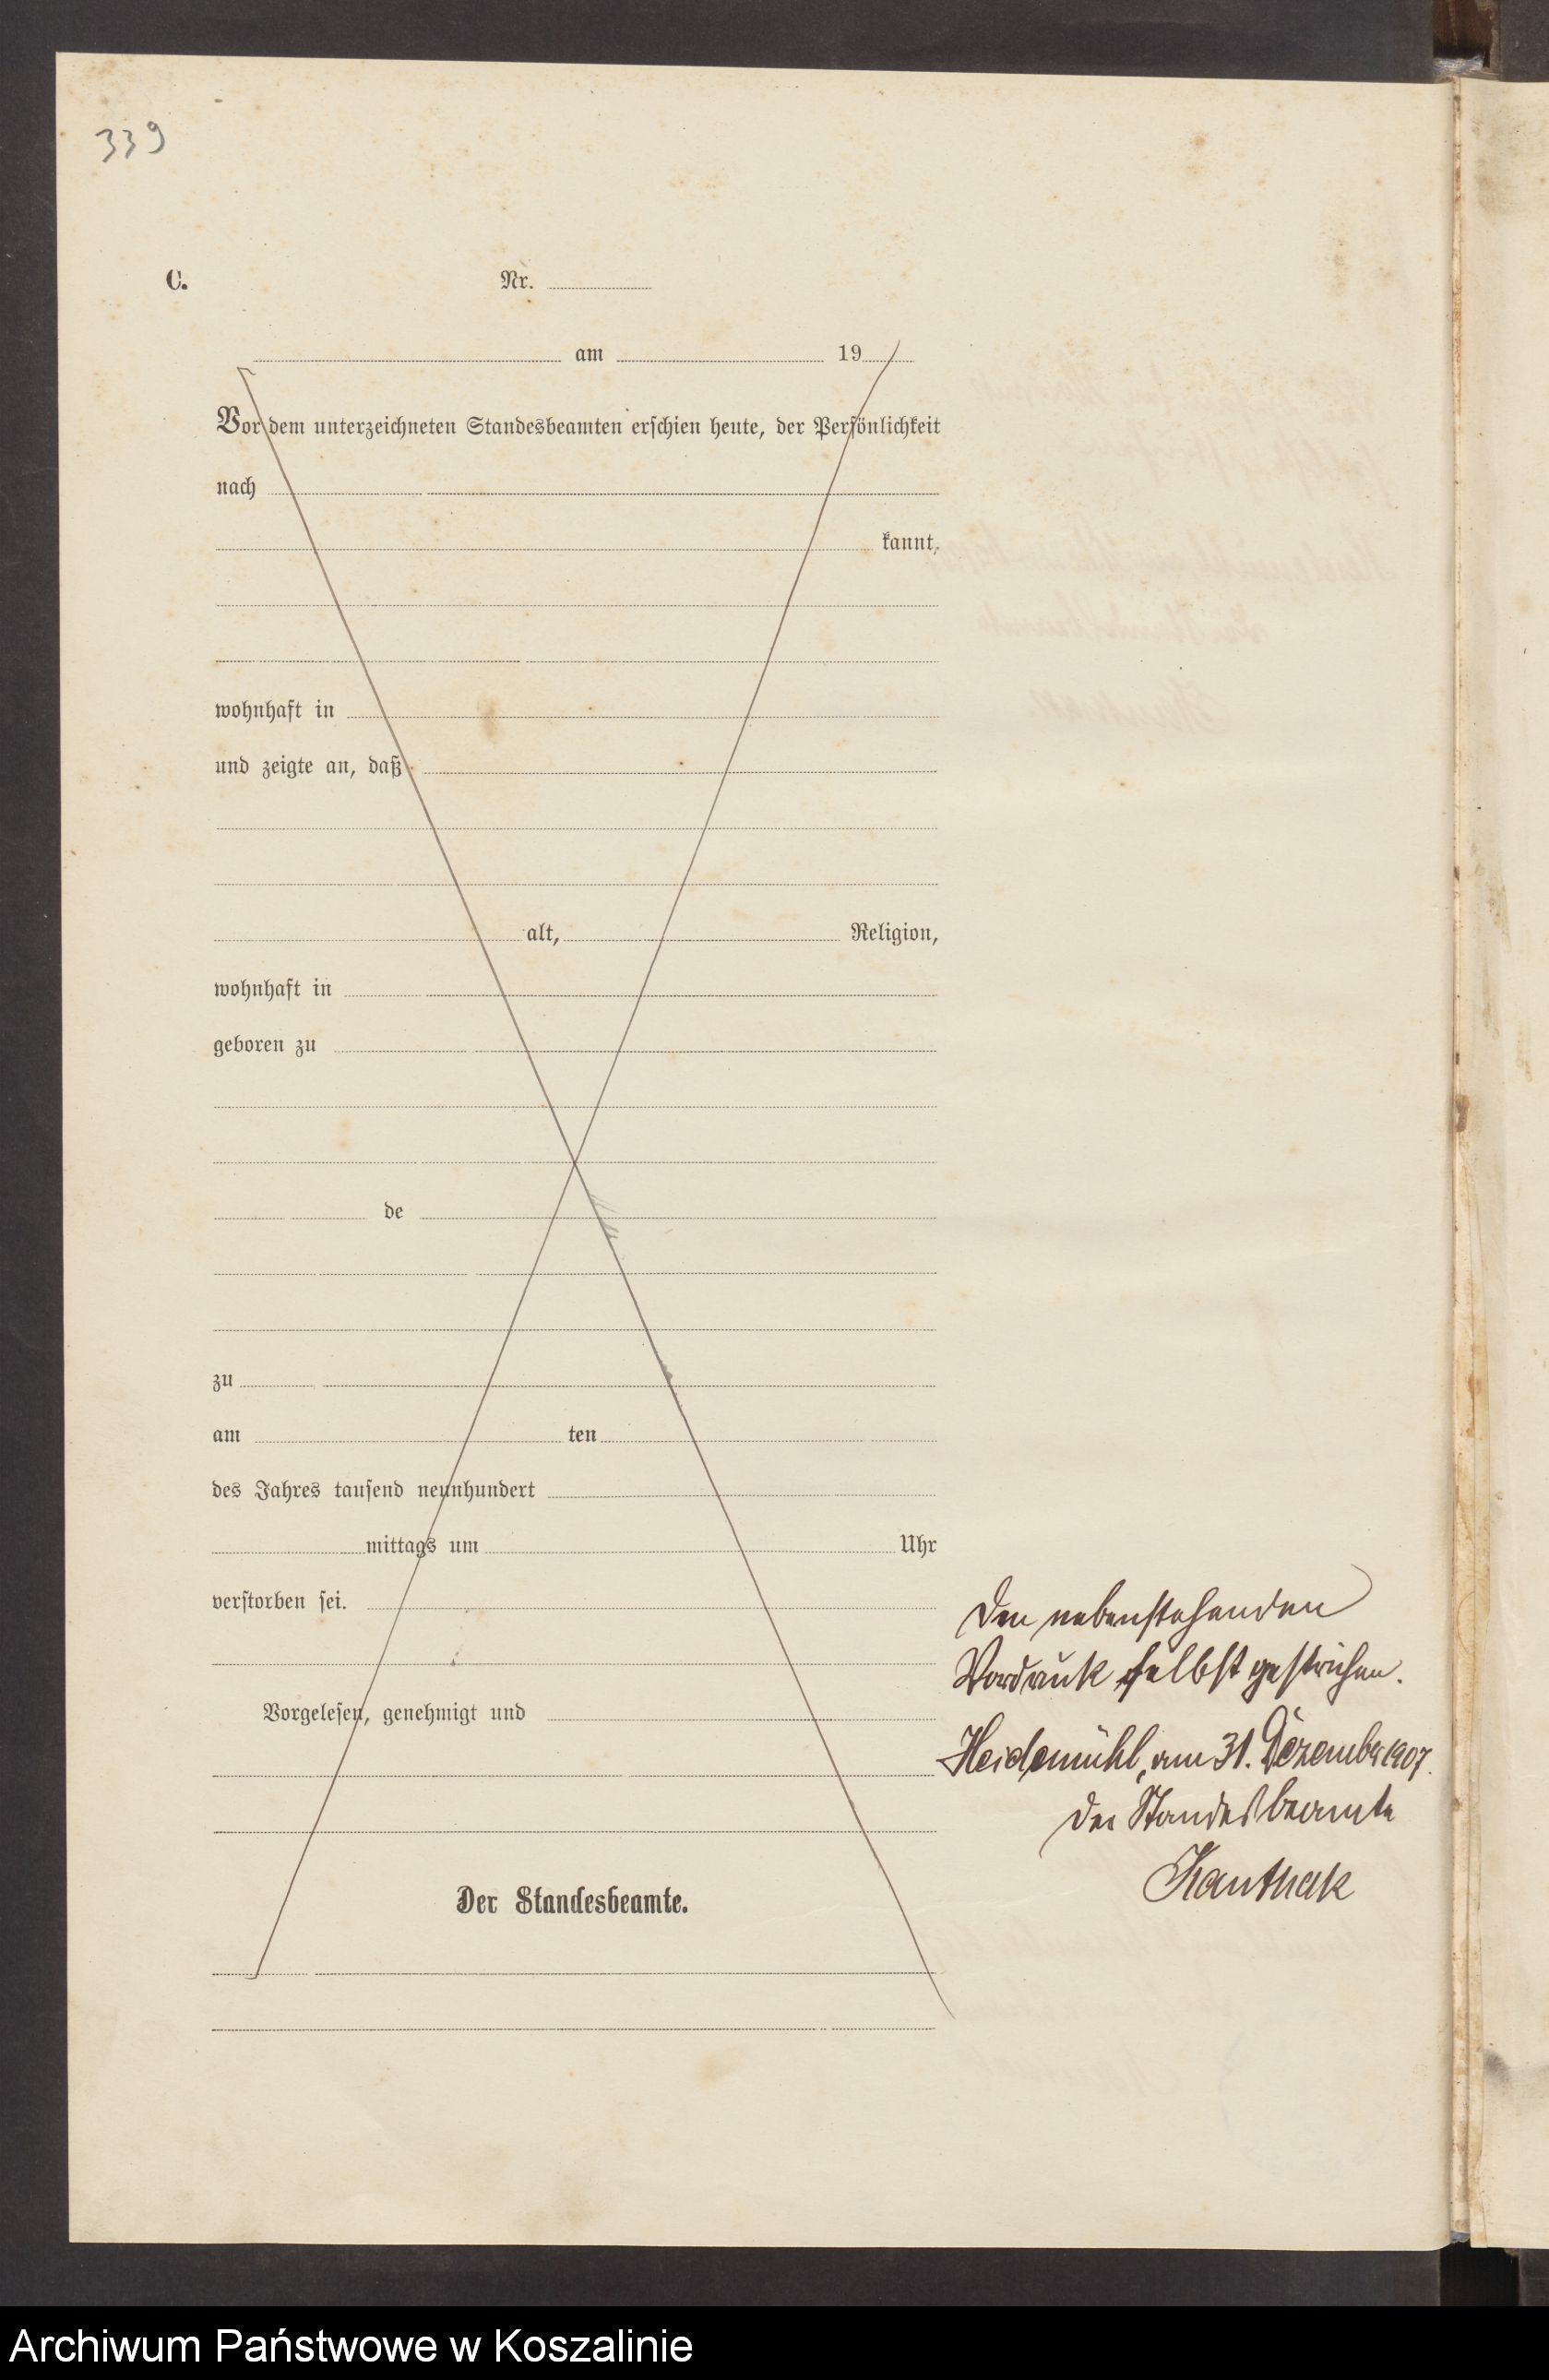 339
C.
Nr.
am 19
Vor dem unterzeichneten Standesbeamten erschien heute, der Persönlichkeit
nach
kannt,
wohnhaft in
und zeigte an, daß
alt, Religion,
wohnhaft in
geboren zu
de
zu
am ten
des Jahres tausend neunhundert
mittags um Uhr
verstorben sei.
Vorgelesen, genehmigt und
Der Standesbeamte.
Den nebenstehenden
Vordruck selbst gestrichen.
Heidemühl, am 31. Dezember 1907.
Der Standesbeamte
Archiwum Państwowe w Koszalinie